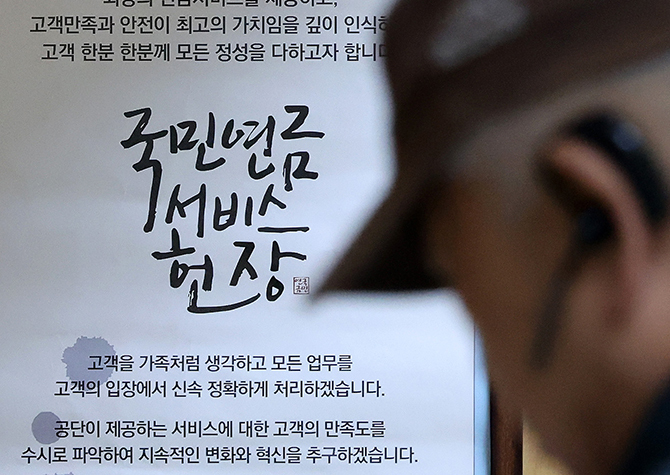 고객만족과 안전이 최고의 가치임을 깊이 인식하
고객 한분 한분께 모든 정성을 다하고자 합니다
국민연금
서비스
헌장
고객을 가족처럼 생각하고 모든 업무를
고객의 입장에서 신속 정확하게 처리하겠습니다.
공단이 제공하는 서비스에 대한 고객의 만족도를
수시로 파악하여 지속적인 변화와 혁신을 추구하겠습니다.